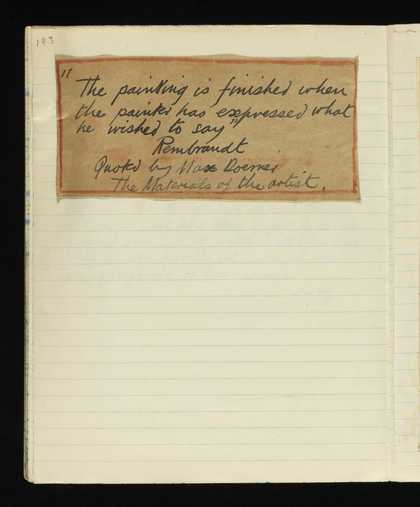 193
"The painting is finished when
the painter has expressed what
he wished to say"
Rembrandt
Quoted by Max Doerner
The Materials of the artist.